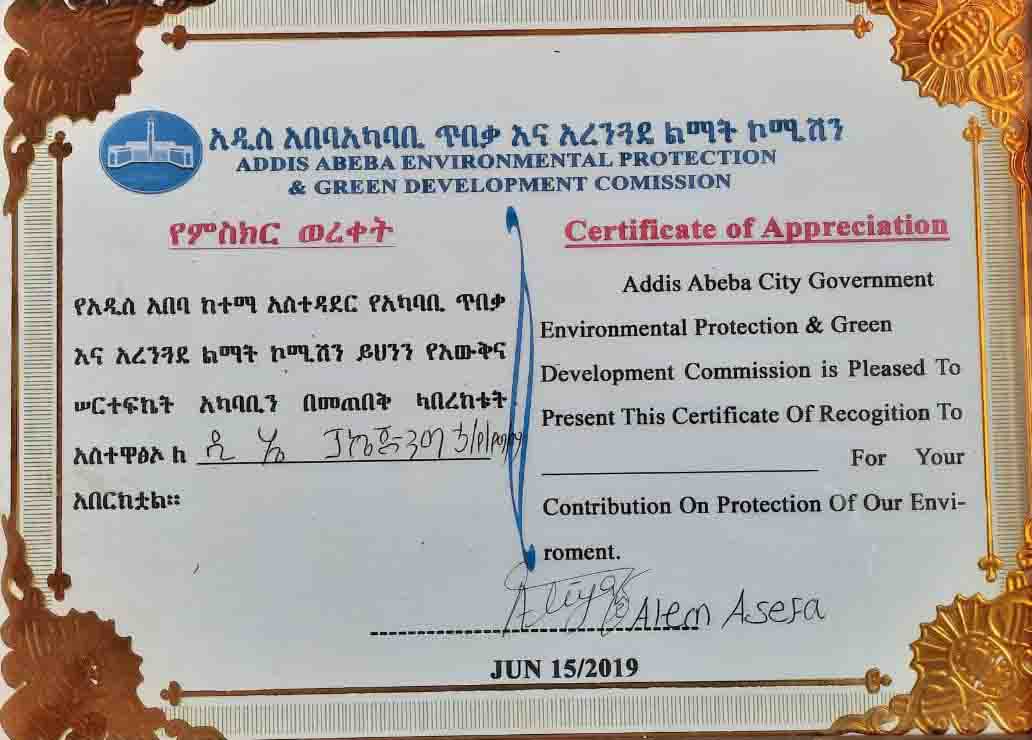 አዲስ አበባአካባቢ ጥበቃ እና አረንጓደ ልማት ኮሚሽን
ADDIS ABEBA ENVIRONMENTAL PROTECTION
& GREEN DEVELOPMENT COMISSION
የምስክር ወረቀት
የአዲስ አበባ ከተማ አስተዳደር የአካባቢ ጥበቃ
እና አረንጓደ ልማት ኮሚሽን ይህንን የእውቅና
ሠርተፍኬት አካባቢን በመጠበቅ ላበረከቱት
አስተዋፅኦ ለ
አበርክቷል።
Certificate of Appreciation
Addis Abeba City Government
Environmental Protection & Green
Development Commission is Pleased To
Present This Certificate Of Recogition To
For Your
Contribution On Protection Of Our Envi-
roment.
Alem Asefa
JUN 15/2019